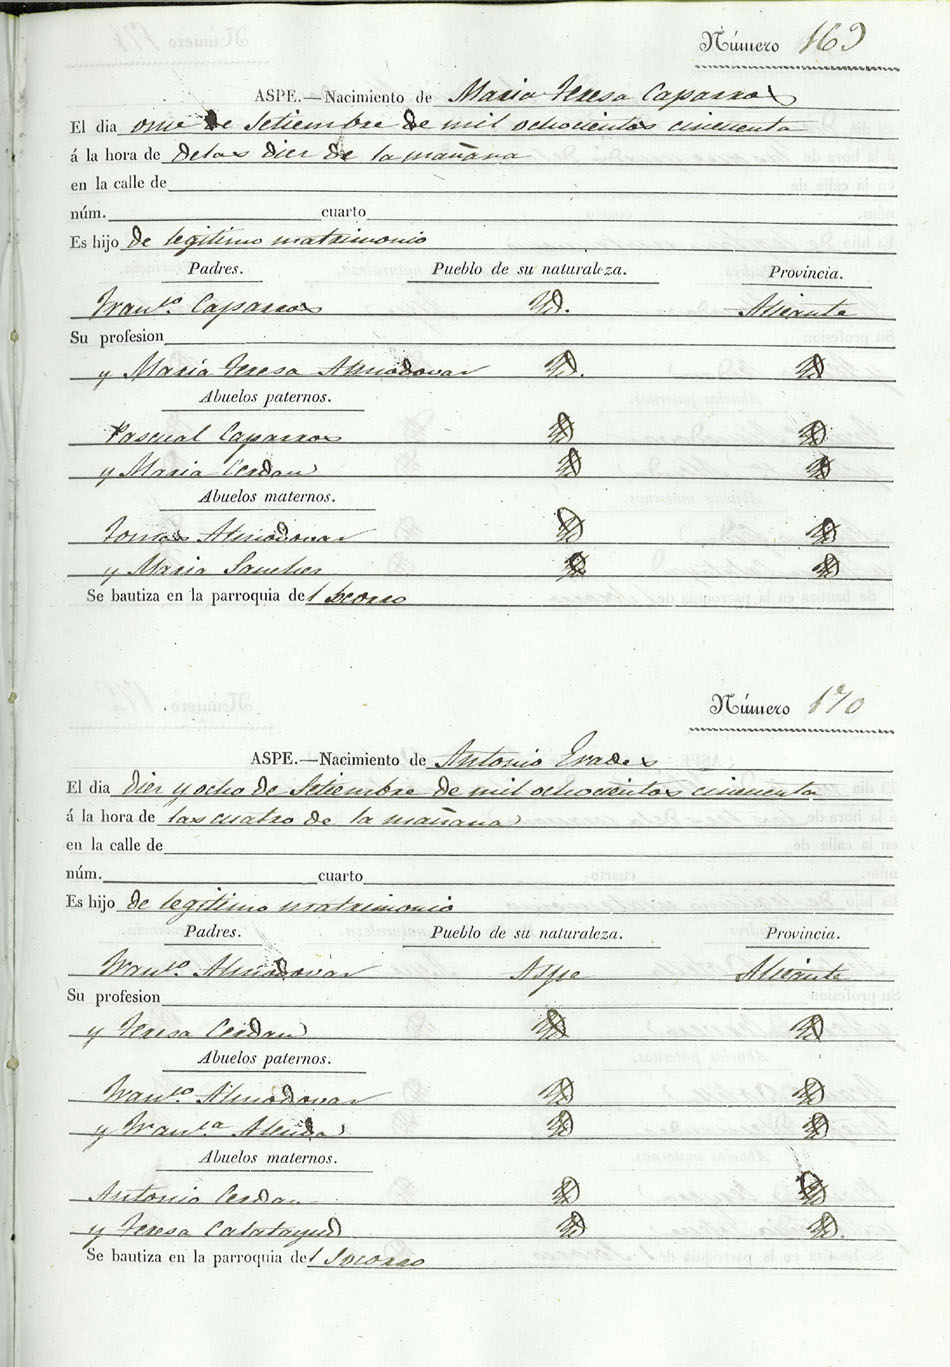 Número 169
ASPE.—Nacimiento de Maria Teresa Caparros
El dia onse de Setiembre de mil ochocientos cincuenta
á la hora de delas dier de la mañana
en la calle de
núm. cuarto
Es hijo de legitimo matrimonio
Padres. Pueblo de su naturaleza. Provincia.
Franco. Caparros Yd. Alicante
Su profesion
y Maria Teresa Almodovar Yd. Yd
Abuelos paternos.
Pascual Caparros Yd Yd
y Maria Cerdan Yd Yd
Abuelos maternos.
Tomas Almodovar Yd Yd
y Maria Sanches Yd Yd
Se bautiza en la parroquia del Socorro
Número 170
ASPE.—Nacimiento de Antonio
El dia dier y ocho de Setiembre de mil ochocientos cincuenta
á la hora de las cuatro de la mañana
en la calle de
núm. cuarto
Es hijo de legitimo matrimonio
Padres. Pueblo de su naturaleza. Provincia.
Franco. Almodovar Aspe Alicante
Su profesion
y Teresa Cerdan Yd Yd
Abuelos paternos.
Franco. Almodovar Yd Yd
y Franca. Yd Yd
Abuelos maternos.
Antonio Cerdan Yd Yd
y Teresa Calatayud Yd Yd.
Se bautiza en la parroquia del Socorro